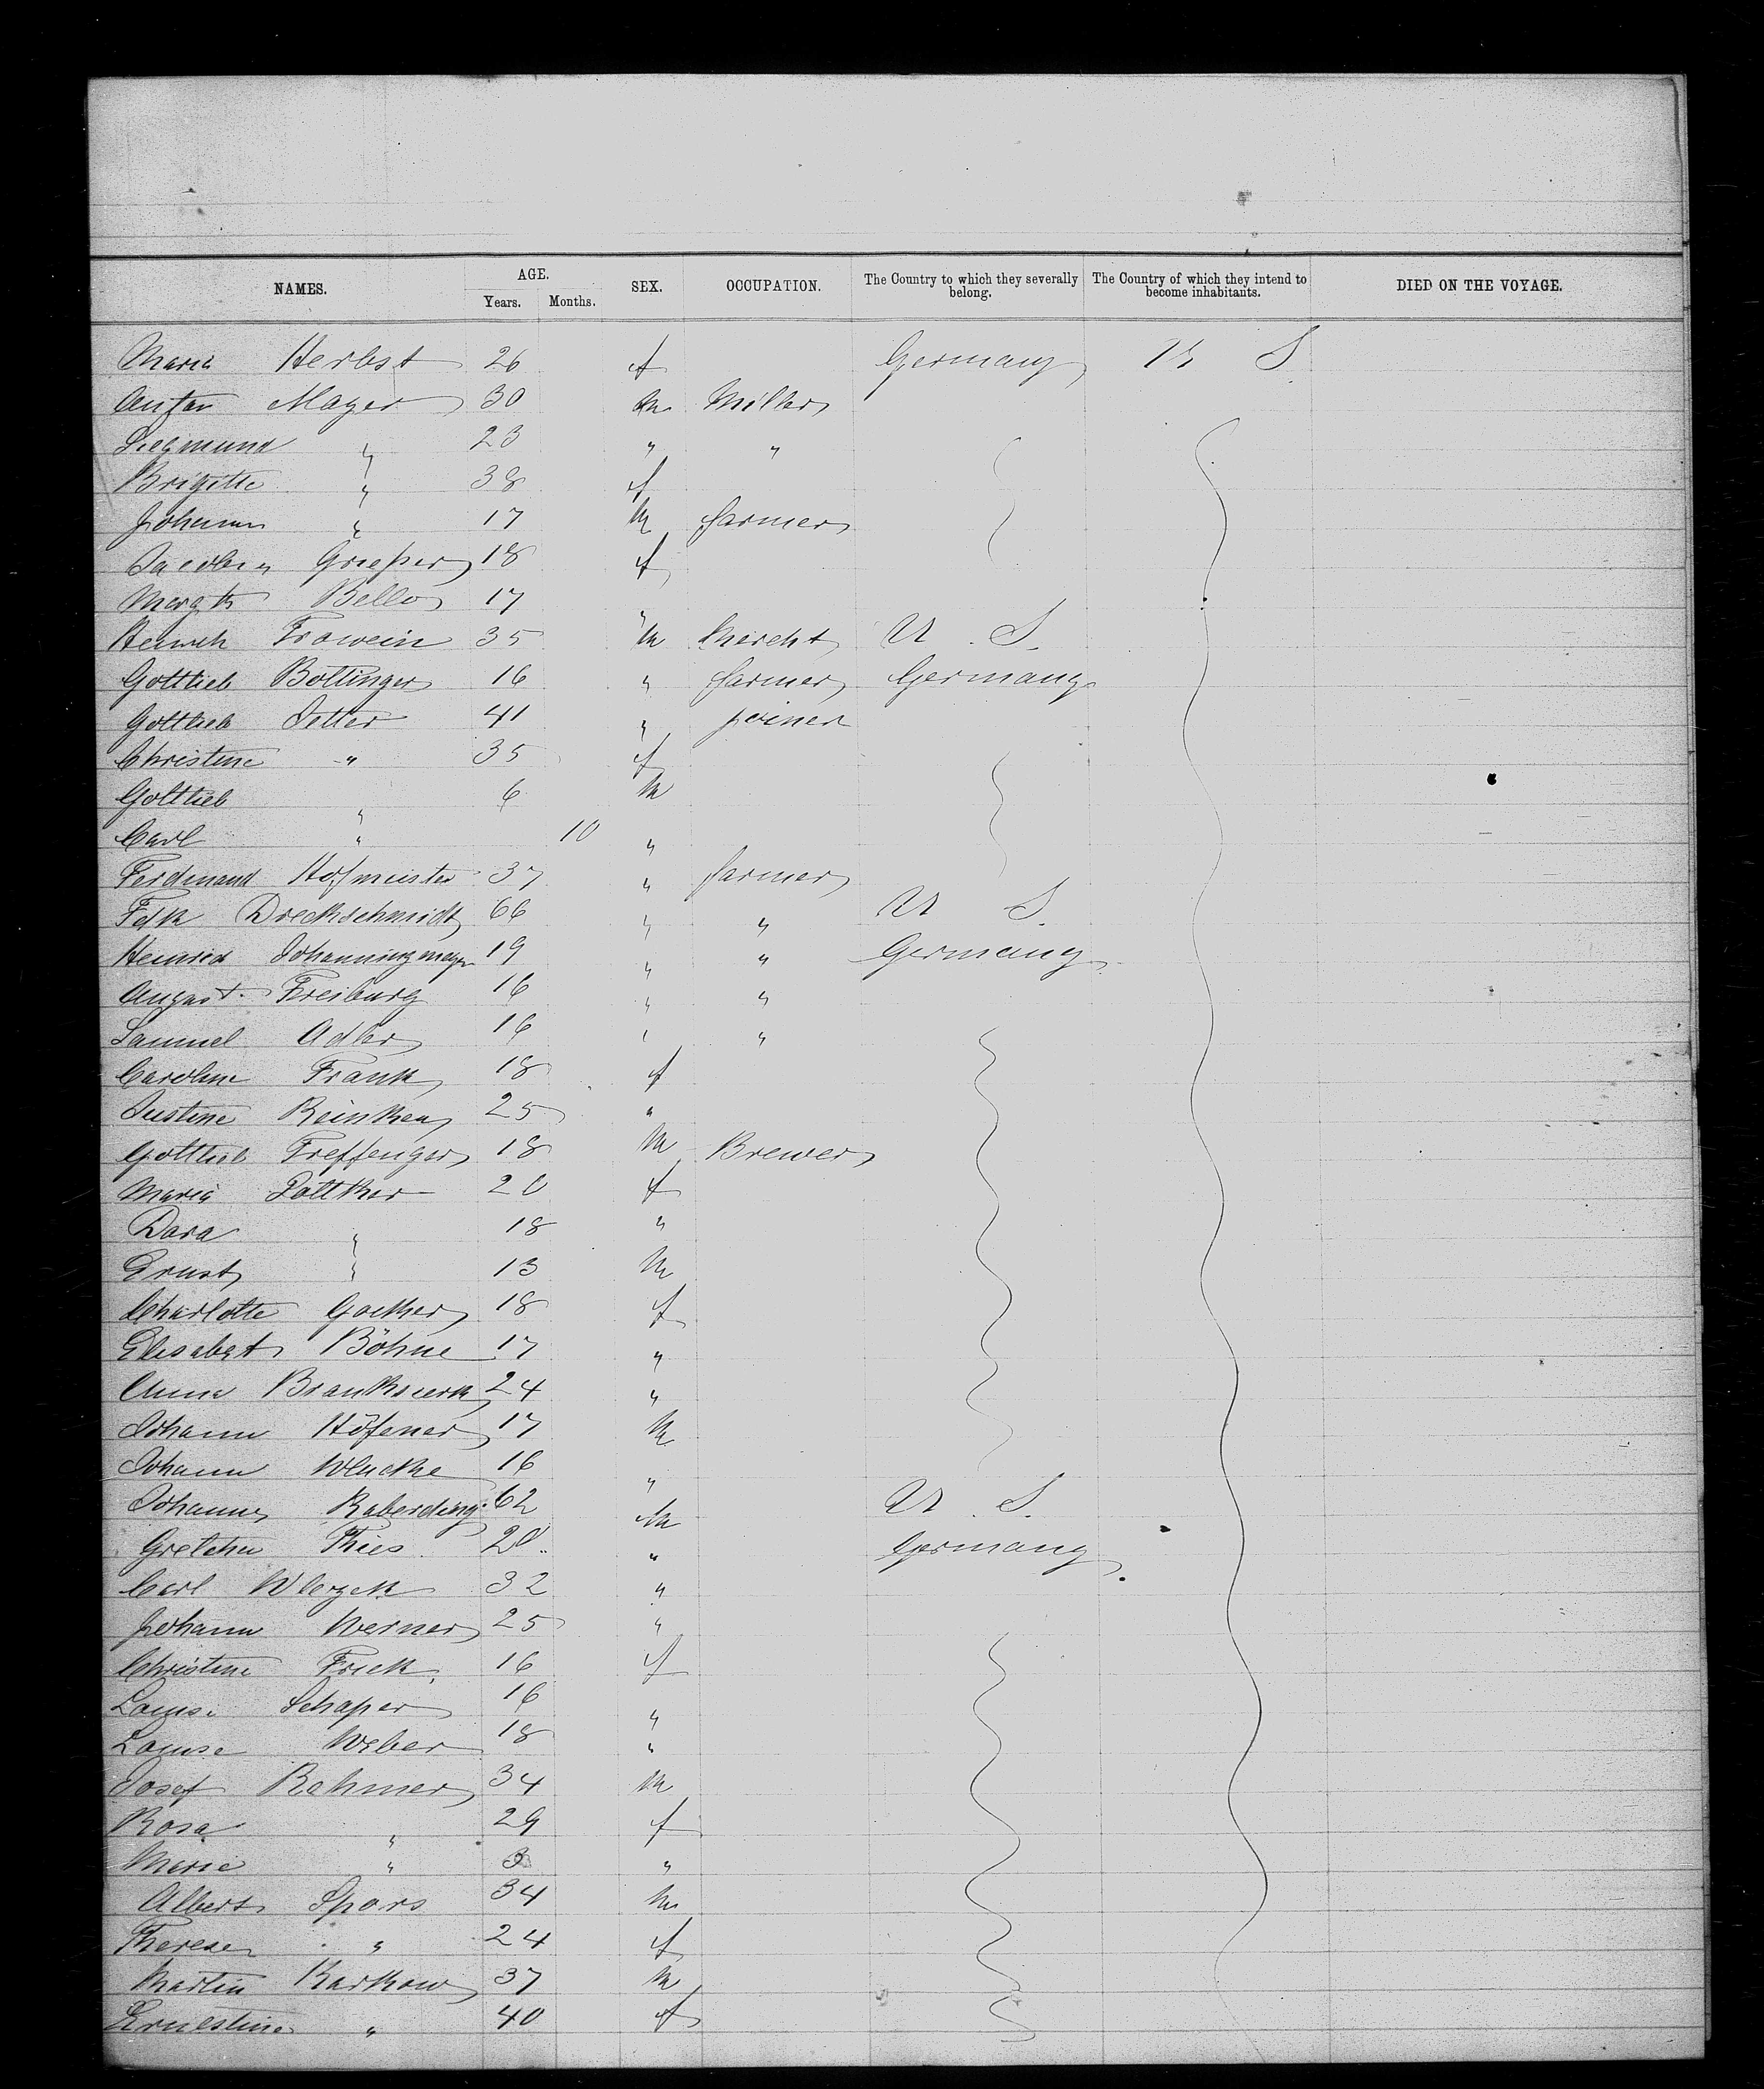 NAMES. AGE. Years. Months. SEX. OCCUPATION. The Country to which they severally belong. The Country of which they intend to become inhabitants. DIED ON THE VOYAGE.
Maria Herbst 26 f Germany U S
Anton Mayer 30 m Miller
Siegmund " 23 " "
Brigitte " 38 f
Johann " 17 m farmer
Jacobin 18 f
Margth Bello 17 "
Heinrich Frowein 35 m Mercht U. S.
Gottlieb Bollinger 16 " farmer Germany
Gottlieb Jetter 41 " joiner
Christine " 35 f
Gottlieb " 6 m
Carl " 10 "
Ferdinand Hofmeister 37 " farmer
Fdk Dreckschmidt 66 " " U S.
Heinrich Johanningmeyer 19 " " Germany
August Freiburg 16 " "
Samuel Adler 16 " "
Caroline Frank 18 f
Justine Reinken 25 "
Gottlieb Treffenger 18 m Brewer
Maria Pöttker 20 f
Dora " 18 "
Ernst " 13 m
Charlotte Goeker 18 f
Elisabet Böhne 17 "
Anna 24 "
Johann Höfener 17 m
Johann 16 "
Johann Raberding 62 m U. S.
Gretchen Thies 20 " Germany
Carl 32 "
Johann Werner 25 "
Christine Frick 16 f
Louise Schaper 16 "
Louise Weber 18 "
Josef Rahmer 34 m
Rosa " 29 f
Marie " 3 "
Albert Spors 34 m
Therese " 24 f
Martin Karkow 37 m
Ernestine " 40 f